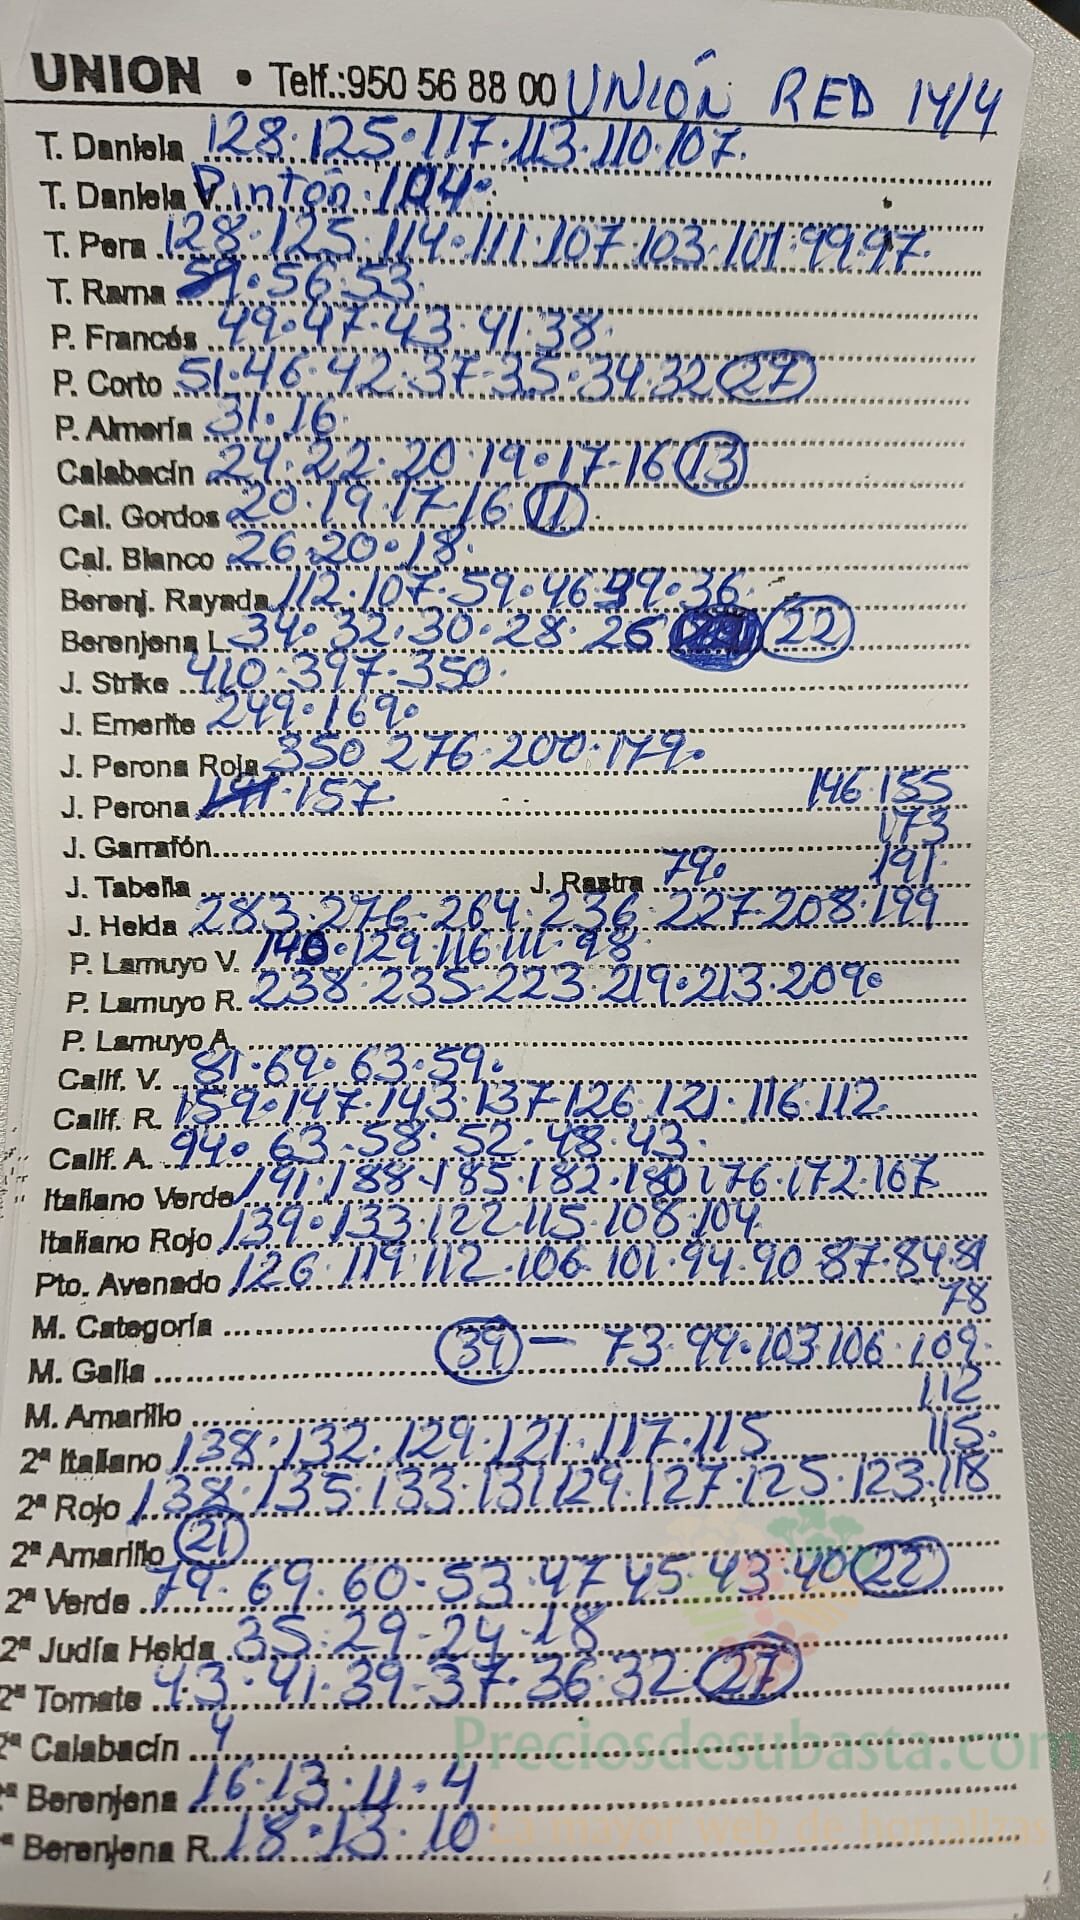 UNION • Telf.:950 56 88 00 UNIÓN RED 14/4
T. Daniela 128.125.117.113.110.107.
T. Daniela V. Pintón. 104.
T. Pera 128.125.114.111.107.103.101.99.97.
T. Rama 59.56.53.
P. Francés 49.47.43.41.38.
P. Corto 51.46.42.37.35.34.32 27
P. Almería 31.16.
Calabacín 24.22.20.19.17.16 13
Cal. Gordos 20.19.17.16 11
Cal. Blanco 26.20.18.
Berenj. Rayada 112.107.59.46.39.36.
Berenjena L. 34.32.30.28.26 22
J. Strike 410.397.350.
J. Emerite 249.169.
J. Perona Roja 350 276.200.179.
J. Perona 157 146.155
J. Garrafón 173
J. Tabella J. Rastra 79. 191.
J. Helda 283.276.264.236.227.208.199
P. Lamuyo V. 140.129.116.111.98.
P. Lamuyo R. 238.235.223.219.213.209.
P. Lamuyo A.
Calif. V. 81.69.63.59.
Calif. R. 159.147.143.137.126.121.116.112.
Calif. A. 94.63.58.52.48.43.
Italiano Verde 191.188.185.182.180 176.172.167
Italiano Rojo 139.133.122.115.108.104.
Pto. Avenado 126.119.112.106.101.94.90 87.84.81
M. Categoría 78
M. Galia 39 — 73.99.103.106.109.
M. Amarillo 112
2ª Italiano 138.132.129.121.117.115 115.
2ª Rojo 138.135.133.131 129.127.125.123.118
2ª Amarillo 21
2ª Verde 79.69.60.53.47 45.43.40 22
2ª Judía Helda 35.29.24.18
2ª Tomate 43.41.39.37.36.32 27
2ª Calabacín 4
ª Berenjena 16.13.11.4
ª Berenjena R. 18.13.10
Preciosdesubasta.com
La mayor web de hortalizas